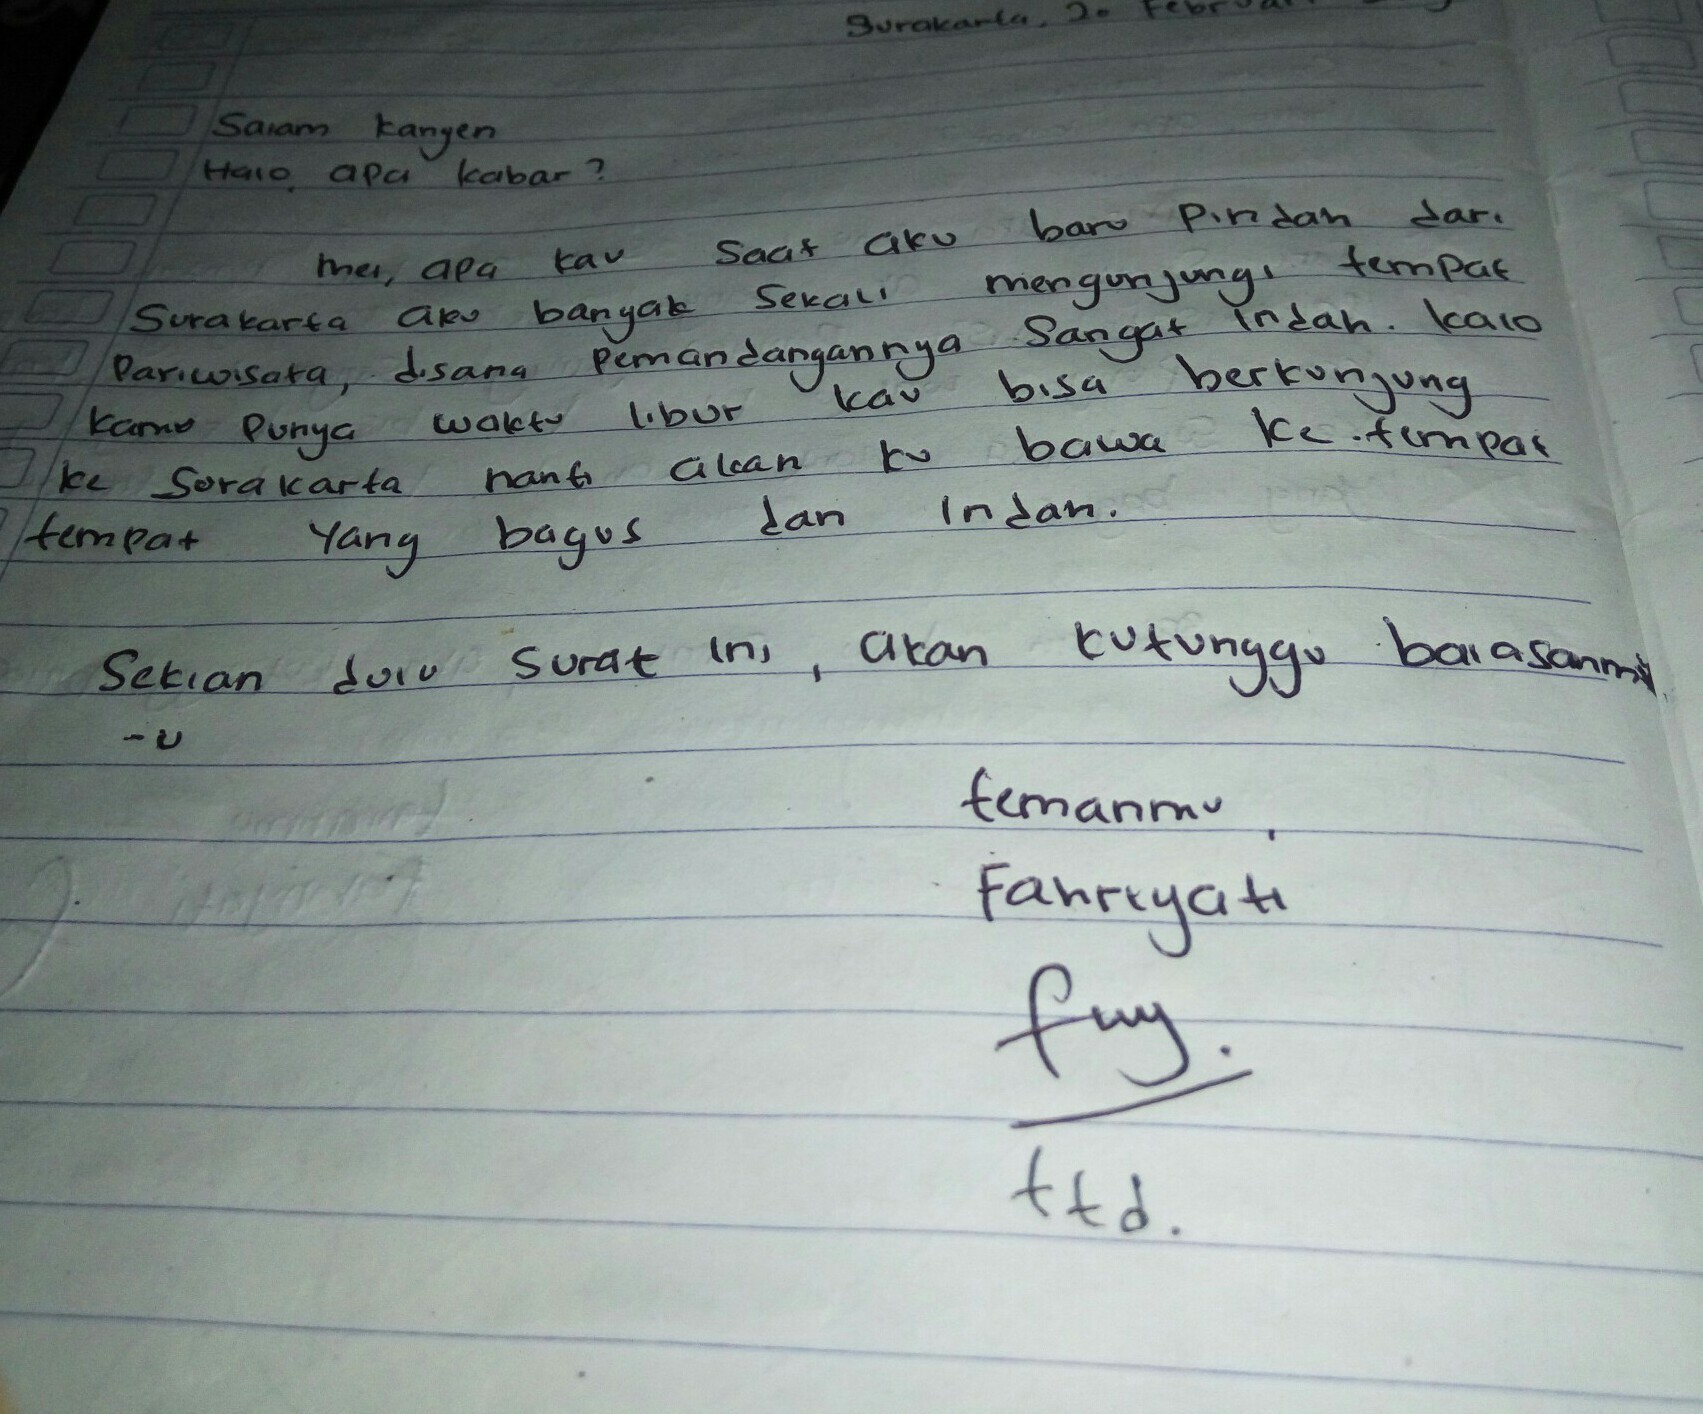 Surakarta, 20 Februari
Salam kangen
Halo, apa kabar?
mei, apa kau saat aku baru Pindah dari
Surakarta aku banyak sekali mengunjungi tempat
Pariwisata, disana Pemandangannya Sangat indah. kalo
kamu Punya waktu libur kau bisa berkunjung
ke Surakarta nanti akan ku bawa ke tempat
tempat yang bagus dan Indah.
Sekian dulu surat ini, akan kutunggu balasanmu
-u
temanmu,
Fahriyati
ttd.